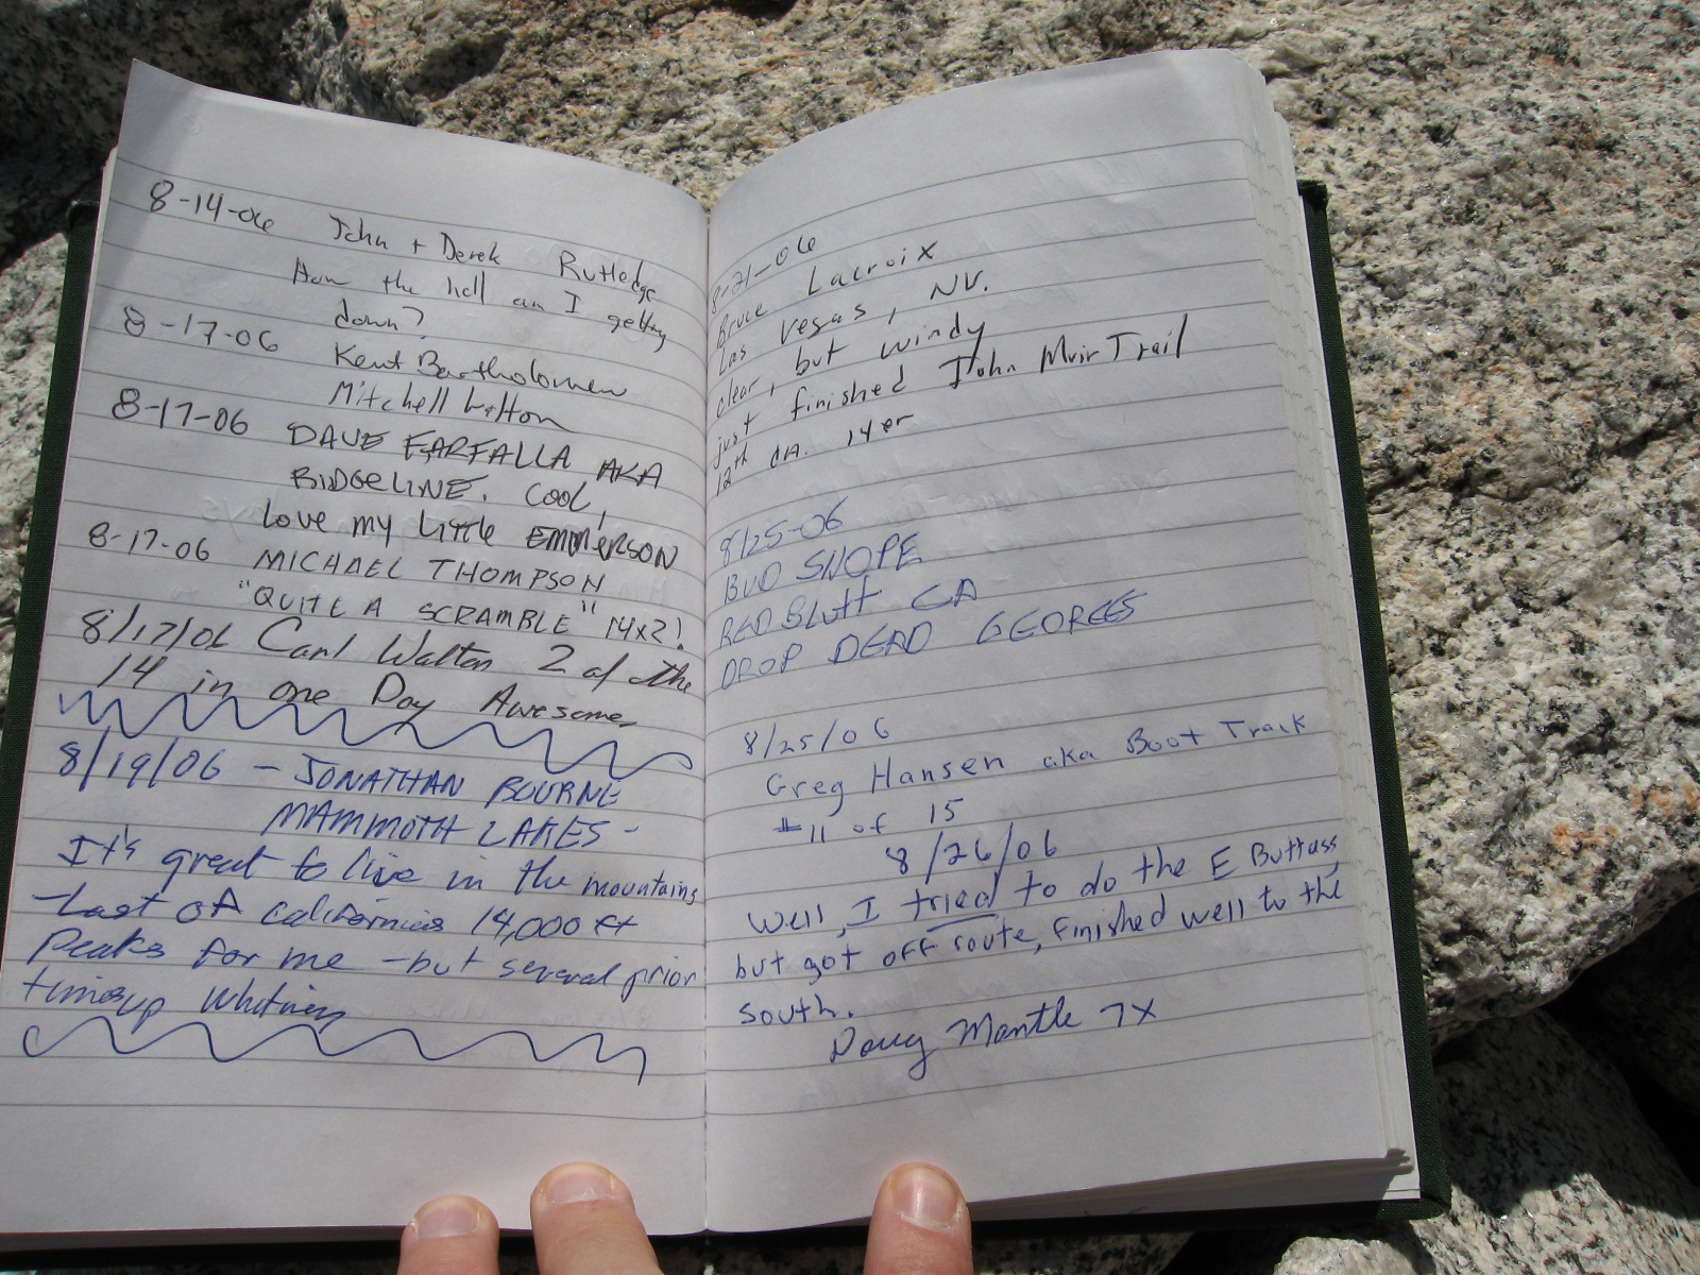 8-14-06 John + Derek Rutledge
How the hell am I getting
down?
8-17-06 Kent Bartholomew
Mitchell
8-17-06 DAVE FARFALLA AKA
RIDGELINE. COOL,
LOVE MY LITTLE EMMERSON
8-17-06 MICHAEL THOMPSON
"QUITE A SCRAMBLE" 14x2!
8/17/06 Carl Walten 2 of the
14 in one Day Awesome
8/19/06 - JONATHAN BOURNE
MAMMOTH LAKES -
It's great to live in the mountains
Last of californias 14,000 ft
Peaks for me - but several prior
times up Whitney
8-21-06
Bruce Lacroix
Las Vegas, NV.
clear, but windy
just finished John Muir Trail
12th CA. 14er
8/25-06
BUD SNOPE
RED BLUFF CA
DROP DEAD GEORGES
8/25/06
Greg Hansen aka Boot Track
#11 of 15
8/26/06
Well, I tried to do the E Buttass,
but got off route, finished well to the
south.
Doug Mantle 7X